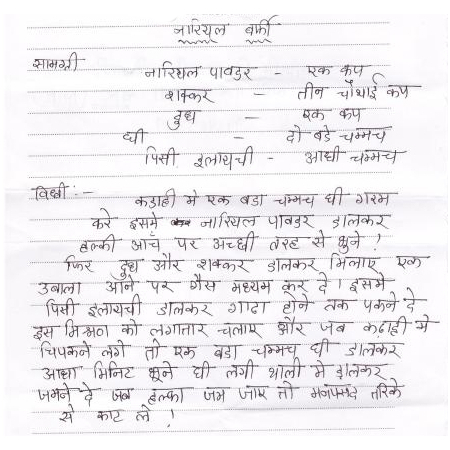 नारियल बर्फी
सामग्री
नारियल पावडर - एक कप
शक्कर - तीन चौथाई कप
दुध - एक कप
घी - दो बडे चम्मच
पिसी इलायची - आधी चम्मच
विधी : -
कडाही मे एक बडा चम्मच घी गरम
करे इसमें नारियल पावडर डालकर
हल्की आंच पर अच्छी तरह से भुने !
फिर दुध और शक्कर डालकर मिलाए एक
उबाला आने पर गैस मध्यम कर दे। इसमे
पिसी इलायची डालकर गाढा होने तक पकने दे
इस मिश्रण को लगातार चलाए और जब कढाही मे
चिपकने लगे तो एक बडा चम्मच घी डालकर
आधा मिनिट भूने घी लगी थाली मे डालकर
जमने दे जब हल्का जम जाए तो मनपसंद तरिके
से काट ले !